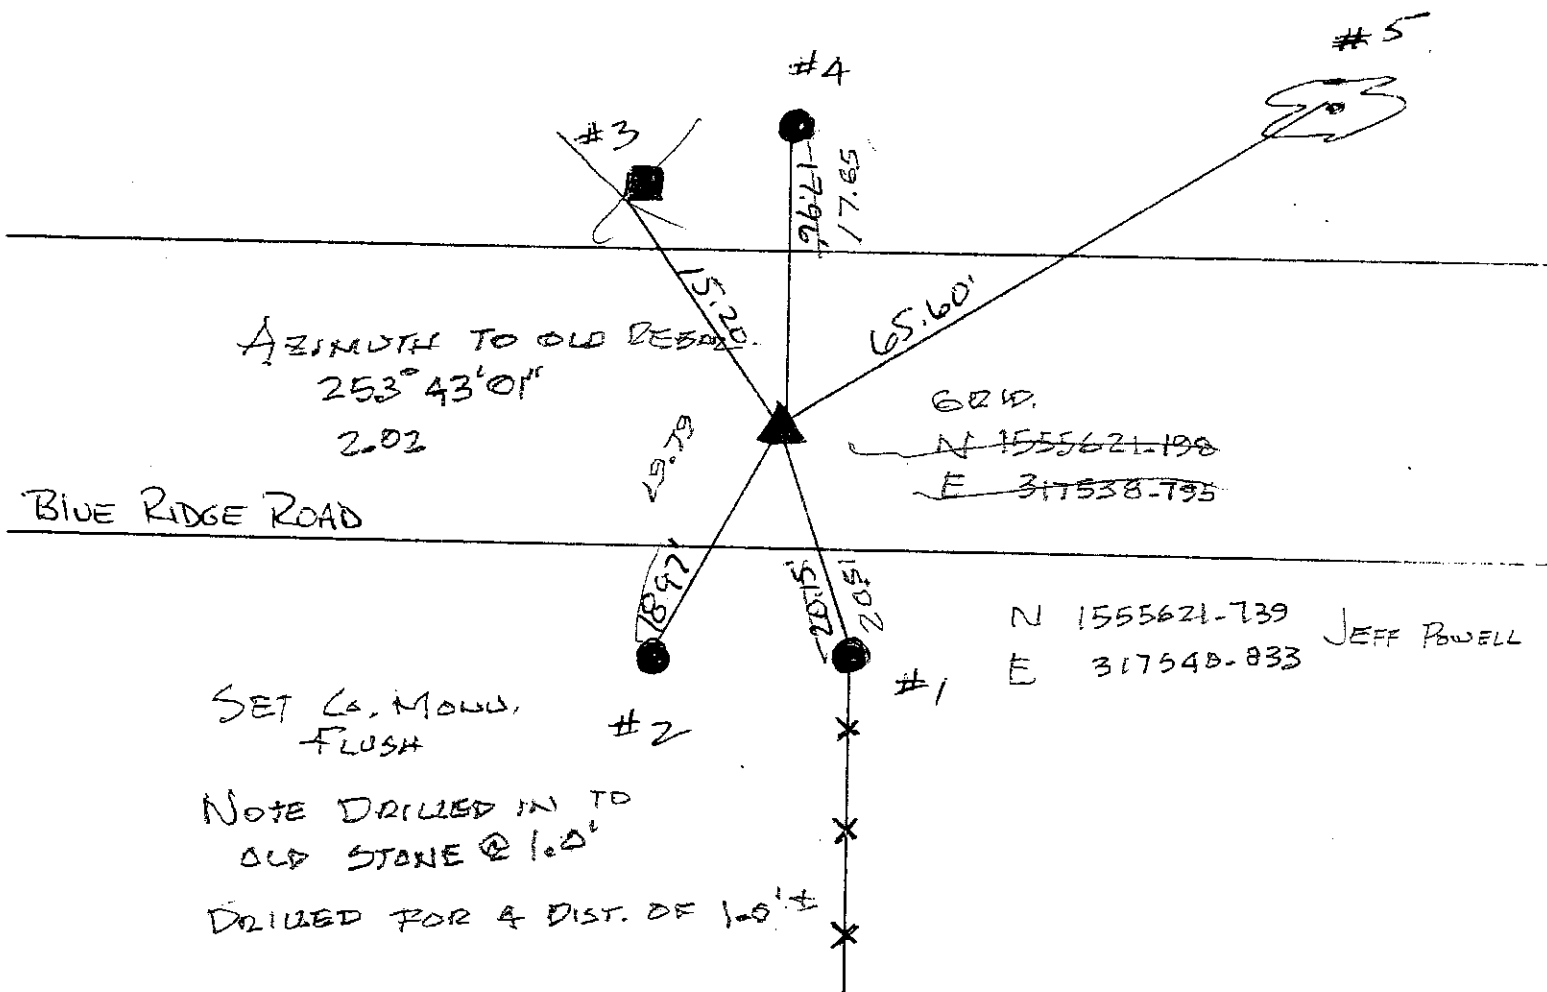 #5
#4
#3
17.96'
17.65
15.20
65.60'
AZIMUTH TO OLD REBAR.
253°43'01"
2.02
GRID.
N 1555621.198
E 317538.795
19.79
BLUE RIDGE ROAD
18.97'
20.15'
20.51
N 1555621.739
E 317540.833
JEFF POWELL
#1
#2
SET Co. MONU.
FLUSH
NOTE DRILLED IN TO
OLD STONE @ 1.0'
DRILLED FOR A DIST. OF 1.0'±